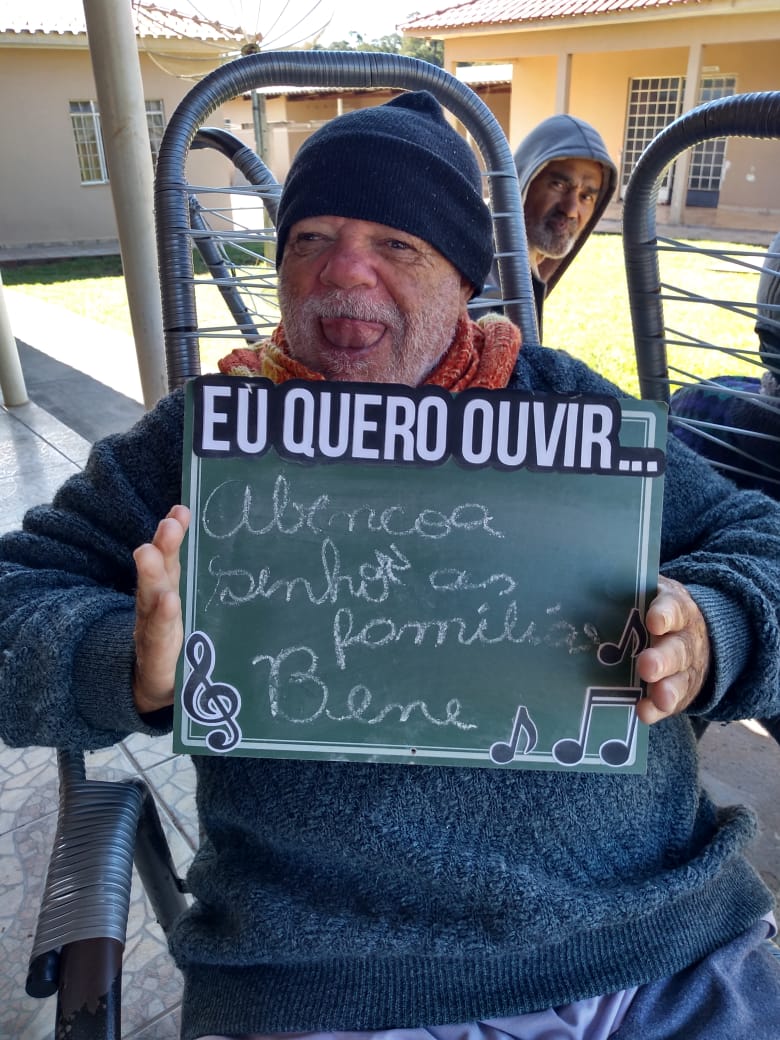 EÙ QUERO OUVIR...
Abencoa
senhor as
famílias
Bene